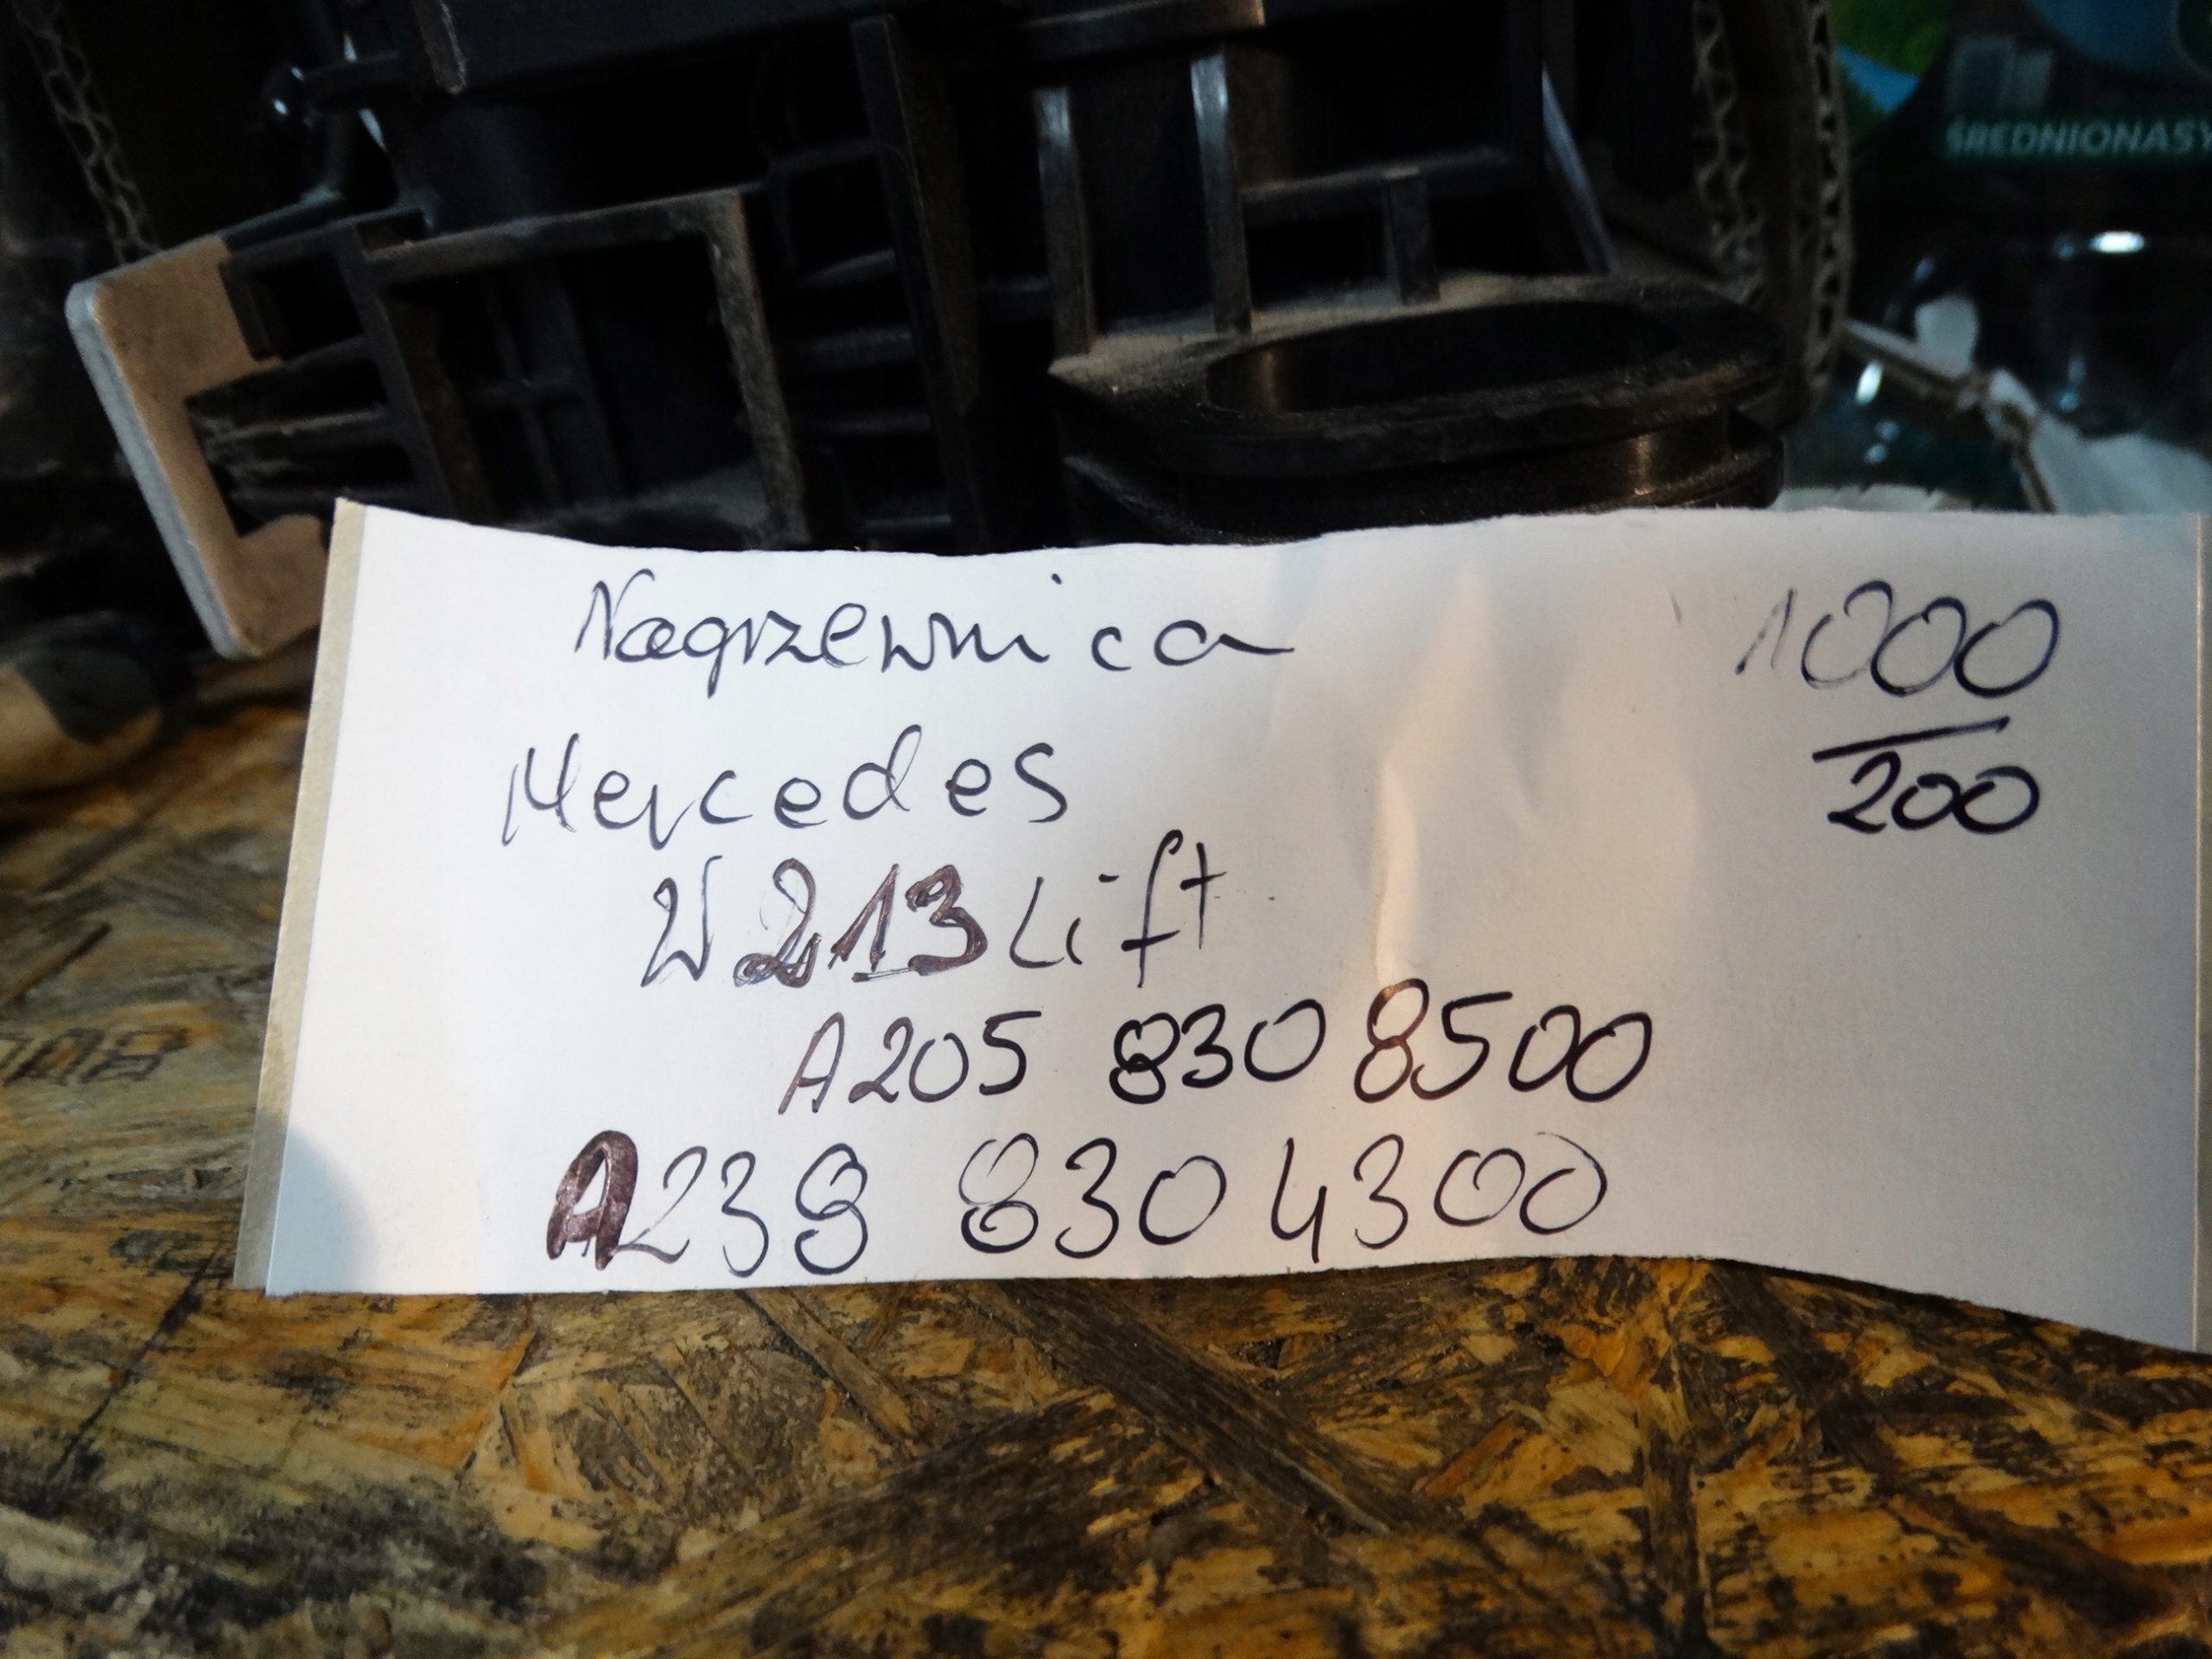 ŚREDNIONASY
Nagrzewnica
1000
200
Mercedes
W213 Lift
A205 830 8500
A238 830 4300